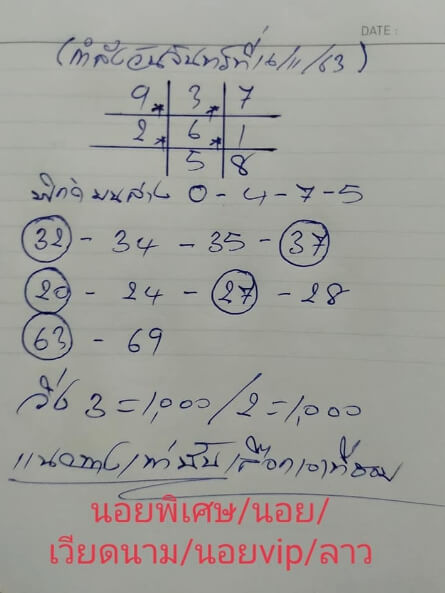 DATE :
(กำลังวันจันทร์ที่ 16/11/63)
9 * 3 * 7
2 * 6 * 1
5 8
พิกัด บนล่าง 0-4-7-5
32 - 34 - 35 - 37
20 - 24 - 27 - 28
63 - 69
วิ่ง 3 = 1,000 / 2 = 1,000
แนวทางเท่านั้น เลือกเอาที่ชอบ
นอยพิเศษ/นอย/
เวียดนาม/นอยvip/ลาว